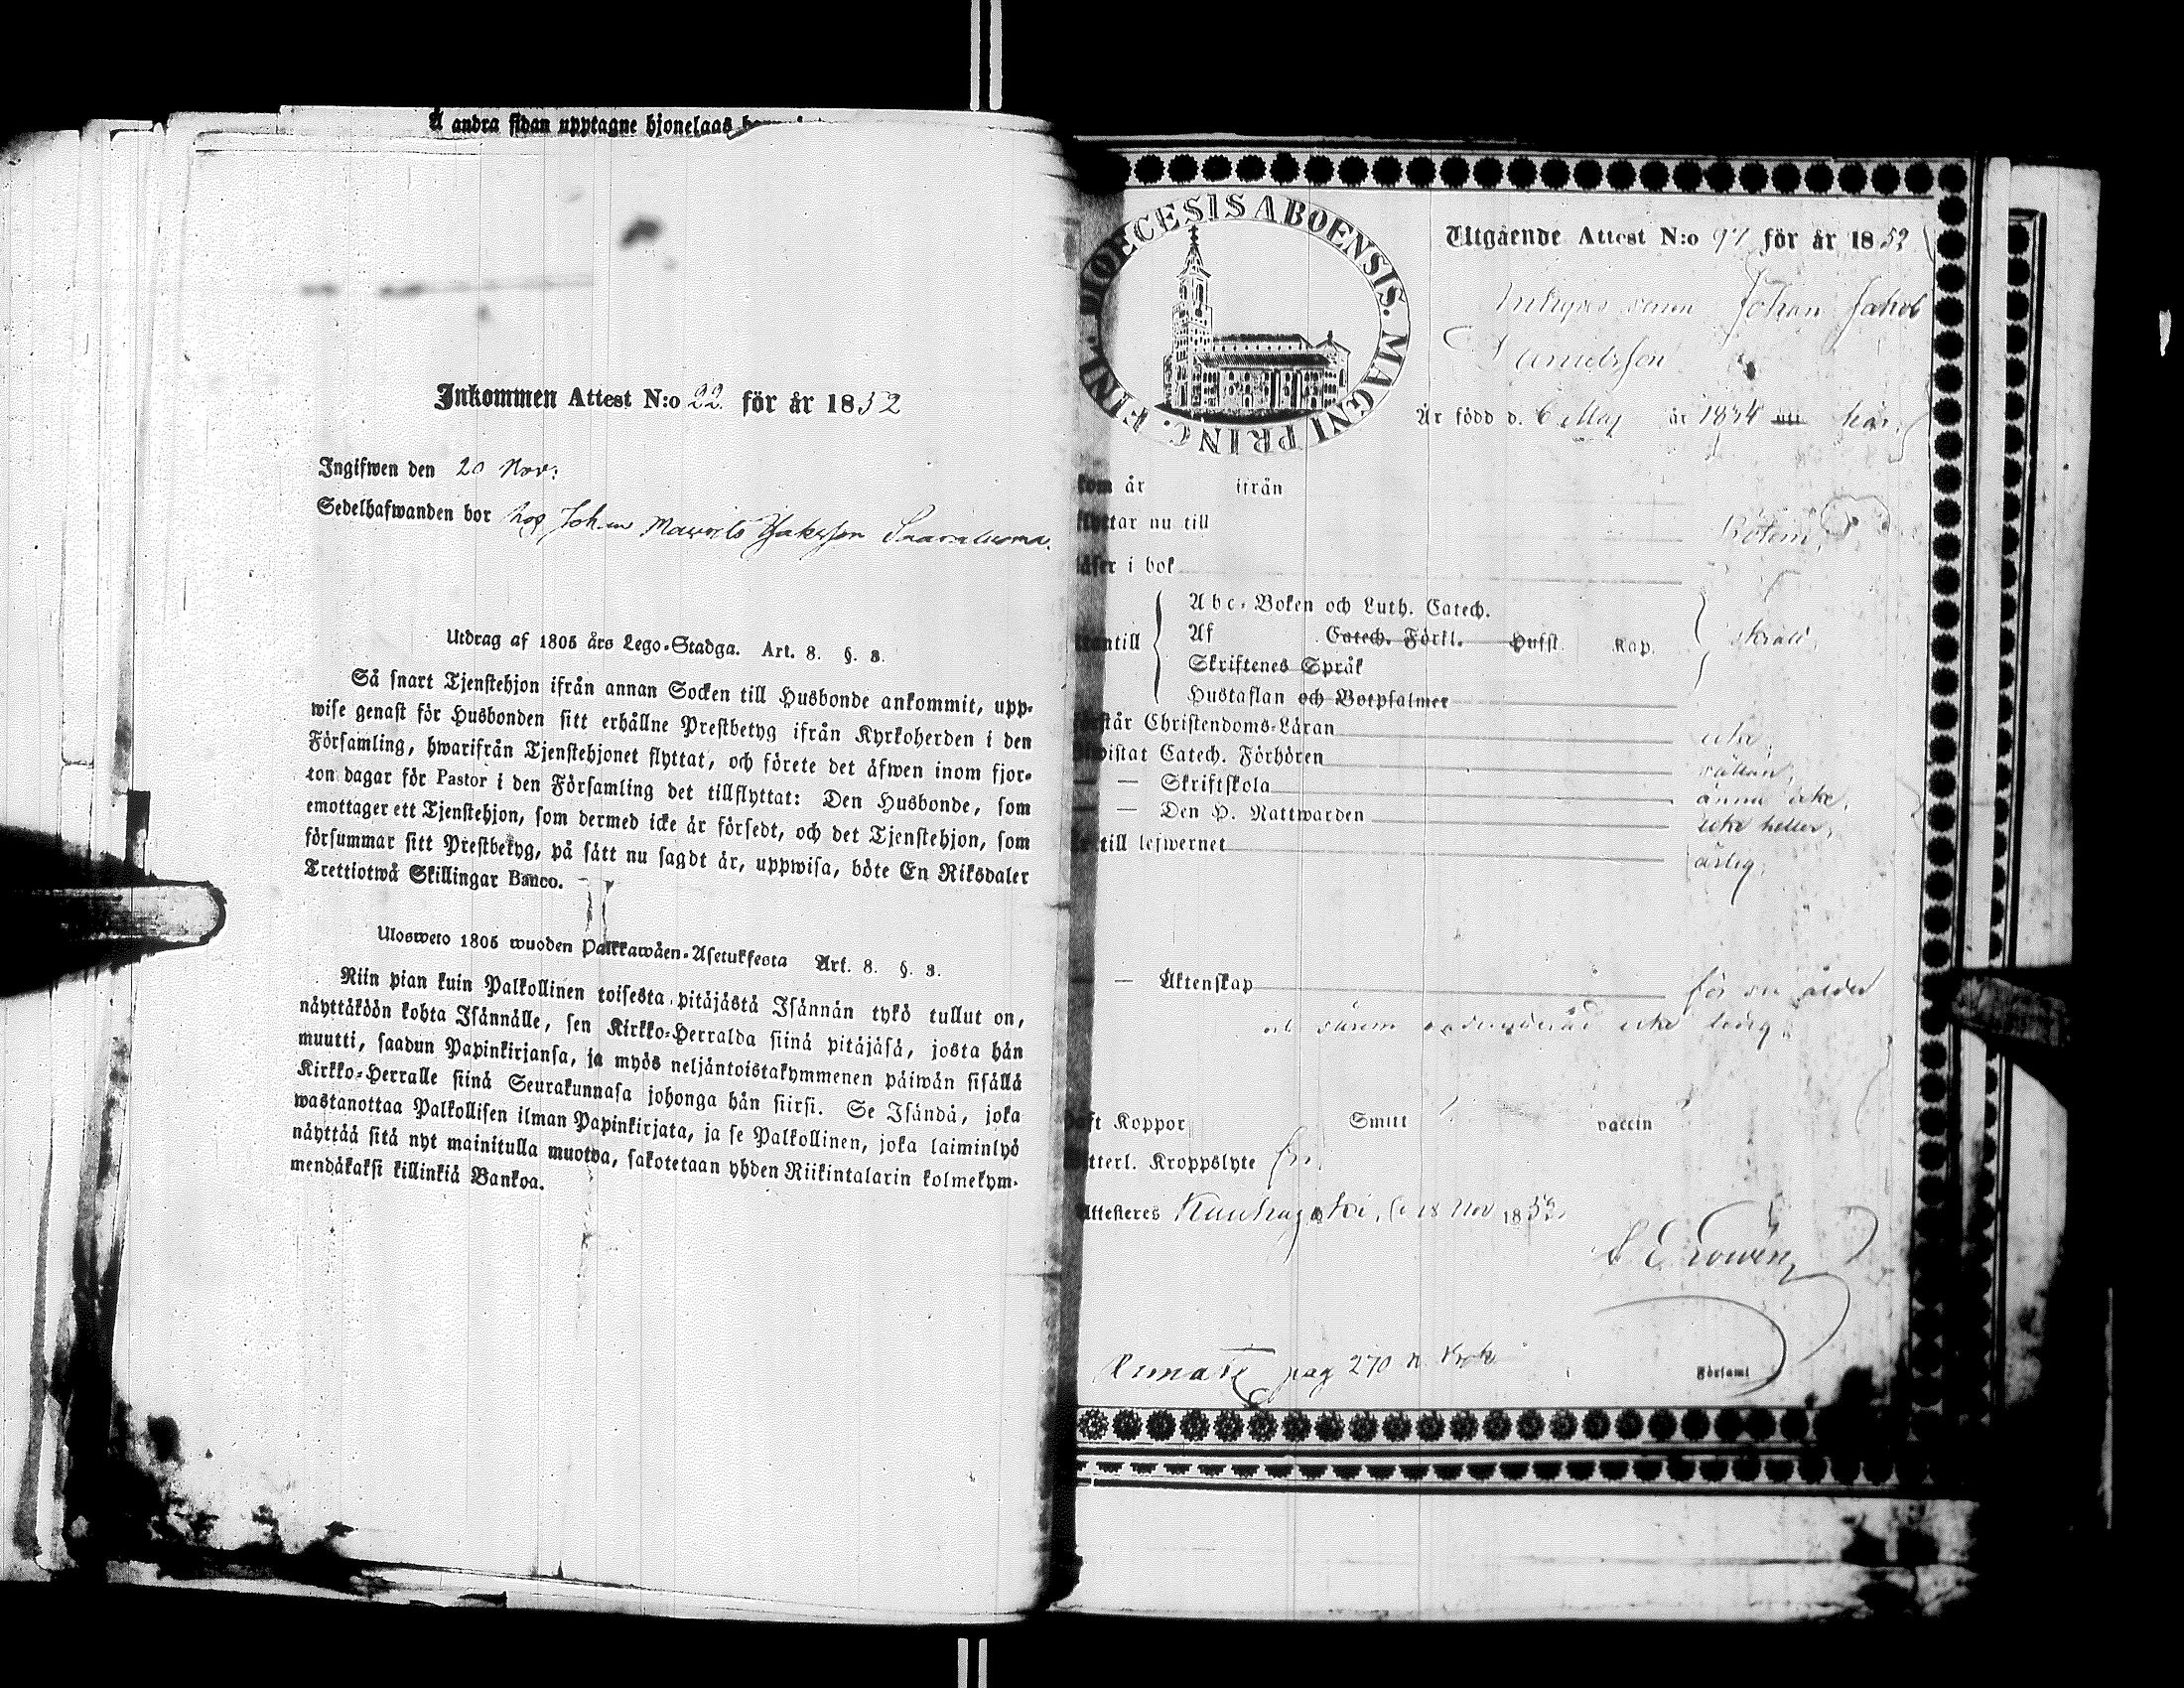 Å andra sidan upptagne hjonelaas
Inkommen Attest N:o 22. för år 1852
Ingifwen den 20 Nov:
Sedelhafwanden bor hos Johan
Utdrag af 1805 års Lego-Stadga. Art. 8. §. 3.
Så snart Tjenstehjon ifrån annan Socken till Husbonde ankommit, upp-
wise genast för Husbonden sitt erhållne Prestbetyg ifrån Kyrkoherden i den
Församling, hwarifrån Tjenstehjonet flyttat, och förete det äfwen inom fjor-
ton dagar för Pastor i den Församling det tillflyttat: Den Husbonde, som
emottager ett Tjenstehjon, som dermed icke är försedt, och det Tjenstehjon, som
försummar sitt Prestbetyg, på sätt nu sagdt är, uppwisa, böte En Riksdaler
Trettiotwå Skillingar Banco.
Ulosweto 1805 wuoden Palkkawäen-Asetuksesta Art. 8. §. 3.
Niin pian kuin Palkollinen toisesta pitäjästä Isännän tykö tullut on,
näyttäköön kohta Isännälle, sen Kirkko-Herralda siinä pitäjäsä, josta hän
muutti, saadun Papinkirjansa, ja myös neljäntoistakymmenen päiwän sisällä
Kirkko-Herralle siinä Seurakunnasa johonga hän siirsi. Se Isändä, joka
wastanottaa Palkollisen ilman Papinkirjata, ja se Palkollinen, joka laiminlyö
näyttää sitä nyt mainitulla muotoa, sakotetaan yhden Riikintalarin kolmekym-
mendäkaksi killinkiä Bankoa.
DIOECESIS ABOENSIS. MAGNI PRINC. FINL.
Utgående Attest N:o 97 för år 1852
Johan Jakob
Är född d. 6 Maj år 1834 här.
kom år ifrån
flyttar nu till
läser i bok
utantill
Abc-Boken och Luth. Catech.
Af Catech. Förkl. Hufst. Kap.
Skriftenes Språk
Hustaflan och Botpsalmer
förstår Christendoms-Läran icke,
bevistat Catech. Förhören sällan,
— — Skriftskola ännu icke,
— — Den H. Nattwarden icke heller,
är till lefwernet ärlig,
— — Äktenskap för sin ålder
icke ledig.
haft Koppor Smitt vaccin
ytterl. Kroppslyte fri.
Attesteres d. 18 Nov 1852.
pag 270
Församl